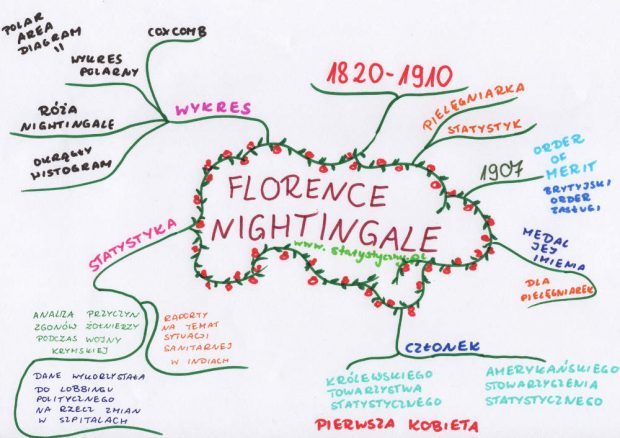 POLAR
AREA
DIAGRAM
COXCOMB
WYKRES
POLARNY
RÓŻA
NIGHTINGALE
OKRĄGŁY
HISTOGRAM
WYKRES
1820-1910
PIELĘGNIARKA
STATYSTYK
1907
ORDER
OF
MERIT
BRYTYJSKI
ORDER
ZASŁUGI
MEDAL
JEJ
IMIENIA
DLA
PIELĘGNIAREK
FLORENCE
NIGHTINGALE
www.statystyczny.pl
STATYSTYKA
ANALIZA PRZYCZYN
ZGONÓW ŻOŁNIERZY
PODCZAS WOJNY
KRYMSKIEJ
RAPORTY
NA TEMAT
SYTUACJI
SANITARNEJ
W INDIACH
DANE WYKORZYSTAŁA
DO LOBBINGU
POLITYCZNEGO
NA RZECZ ZMIAN
W SZPITALACH
CZŁONEK
KRÓLEWSKIEGO
TOWARZYSTWA
STATYSTYCZNEGO
PIERWSZA KOBIETA
AMERYKAŃSKIEGO
STOWARZYSZENIA
STATYSTYCZNEGO